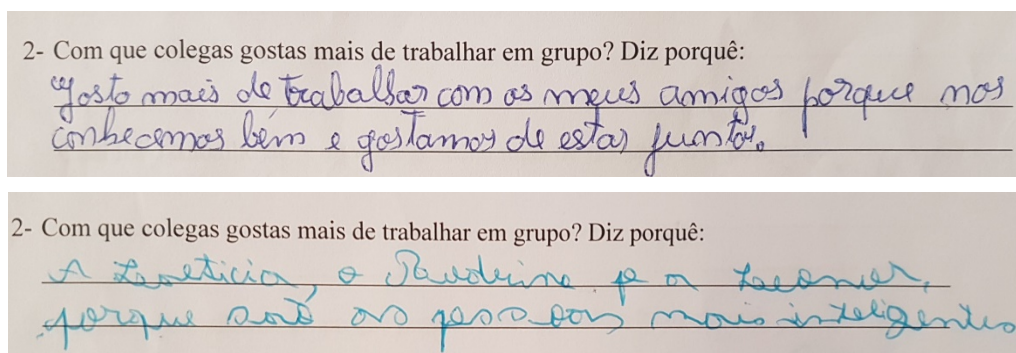 2- Com que colegas gostas mais de trabalhar em grupo? Diz porquê:
Gosto mais de trabalhar com os meus amigos porque nos
conhecemos bem e gostamos de estar juntos.
2- Com que colegas gostas mais de trabalhar em grupo? Diz porquê:
A o e a
porque são as pessoas mais inteligentes